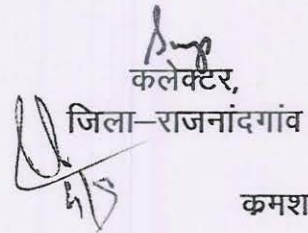 कलेक्टर,
जिला–राजनांदगांव
क्रमश